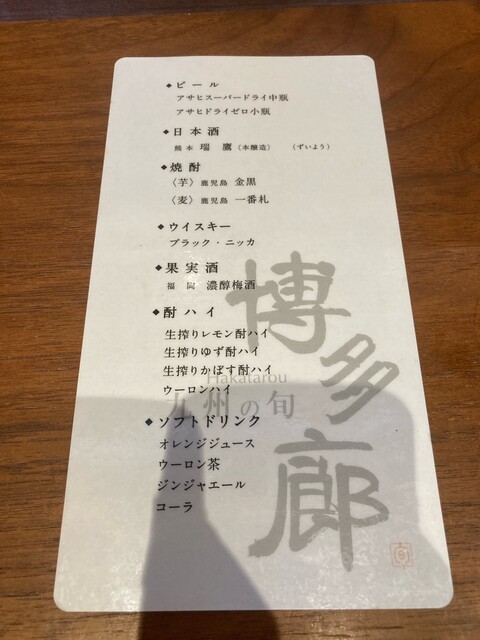 ◆ビール
アサヒスーパードライ中瓶
アサヒドライゼロ小瓶
◆日本酒
熊本 瑞鷹（本醸造） （ずいよう）
◆焼酎
〈芋〉鹿児島 金黒
〈麦〉鹿児島 一番札
◆ウイスキー
ブラック・ニッカ
◆果実酒
福岡 濃醇梅酒
◆酎ハイ
生搾りレモン酎ハイ
生搾りゆず酎ハイ
生搾りかぼす酎ハイ
ウーロンハイ
◆ソフトドリンク
オレンジジュース
ウーロン茶
ジンジャエール
コーラ
博多廊
Hakatarou
九州の旬